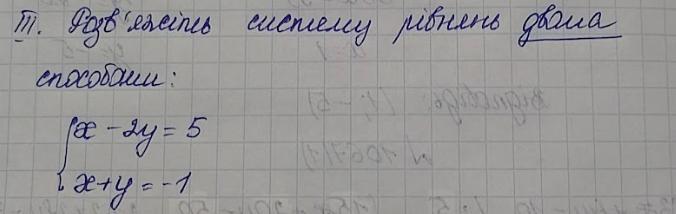 III. Розв'яжіть систему рівнянь двома
способами:
x - 2y = 5
x + y = -1